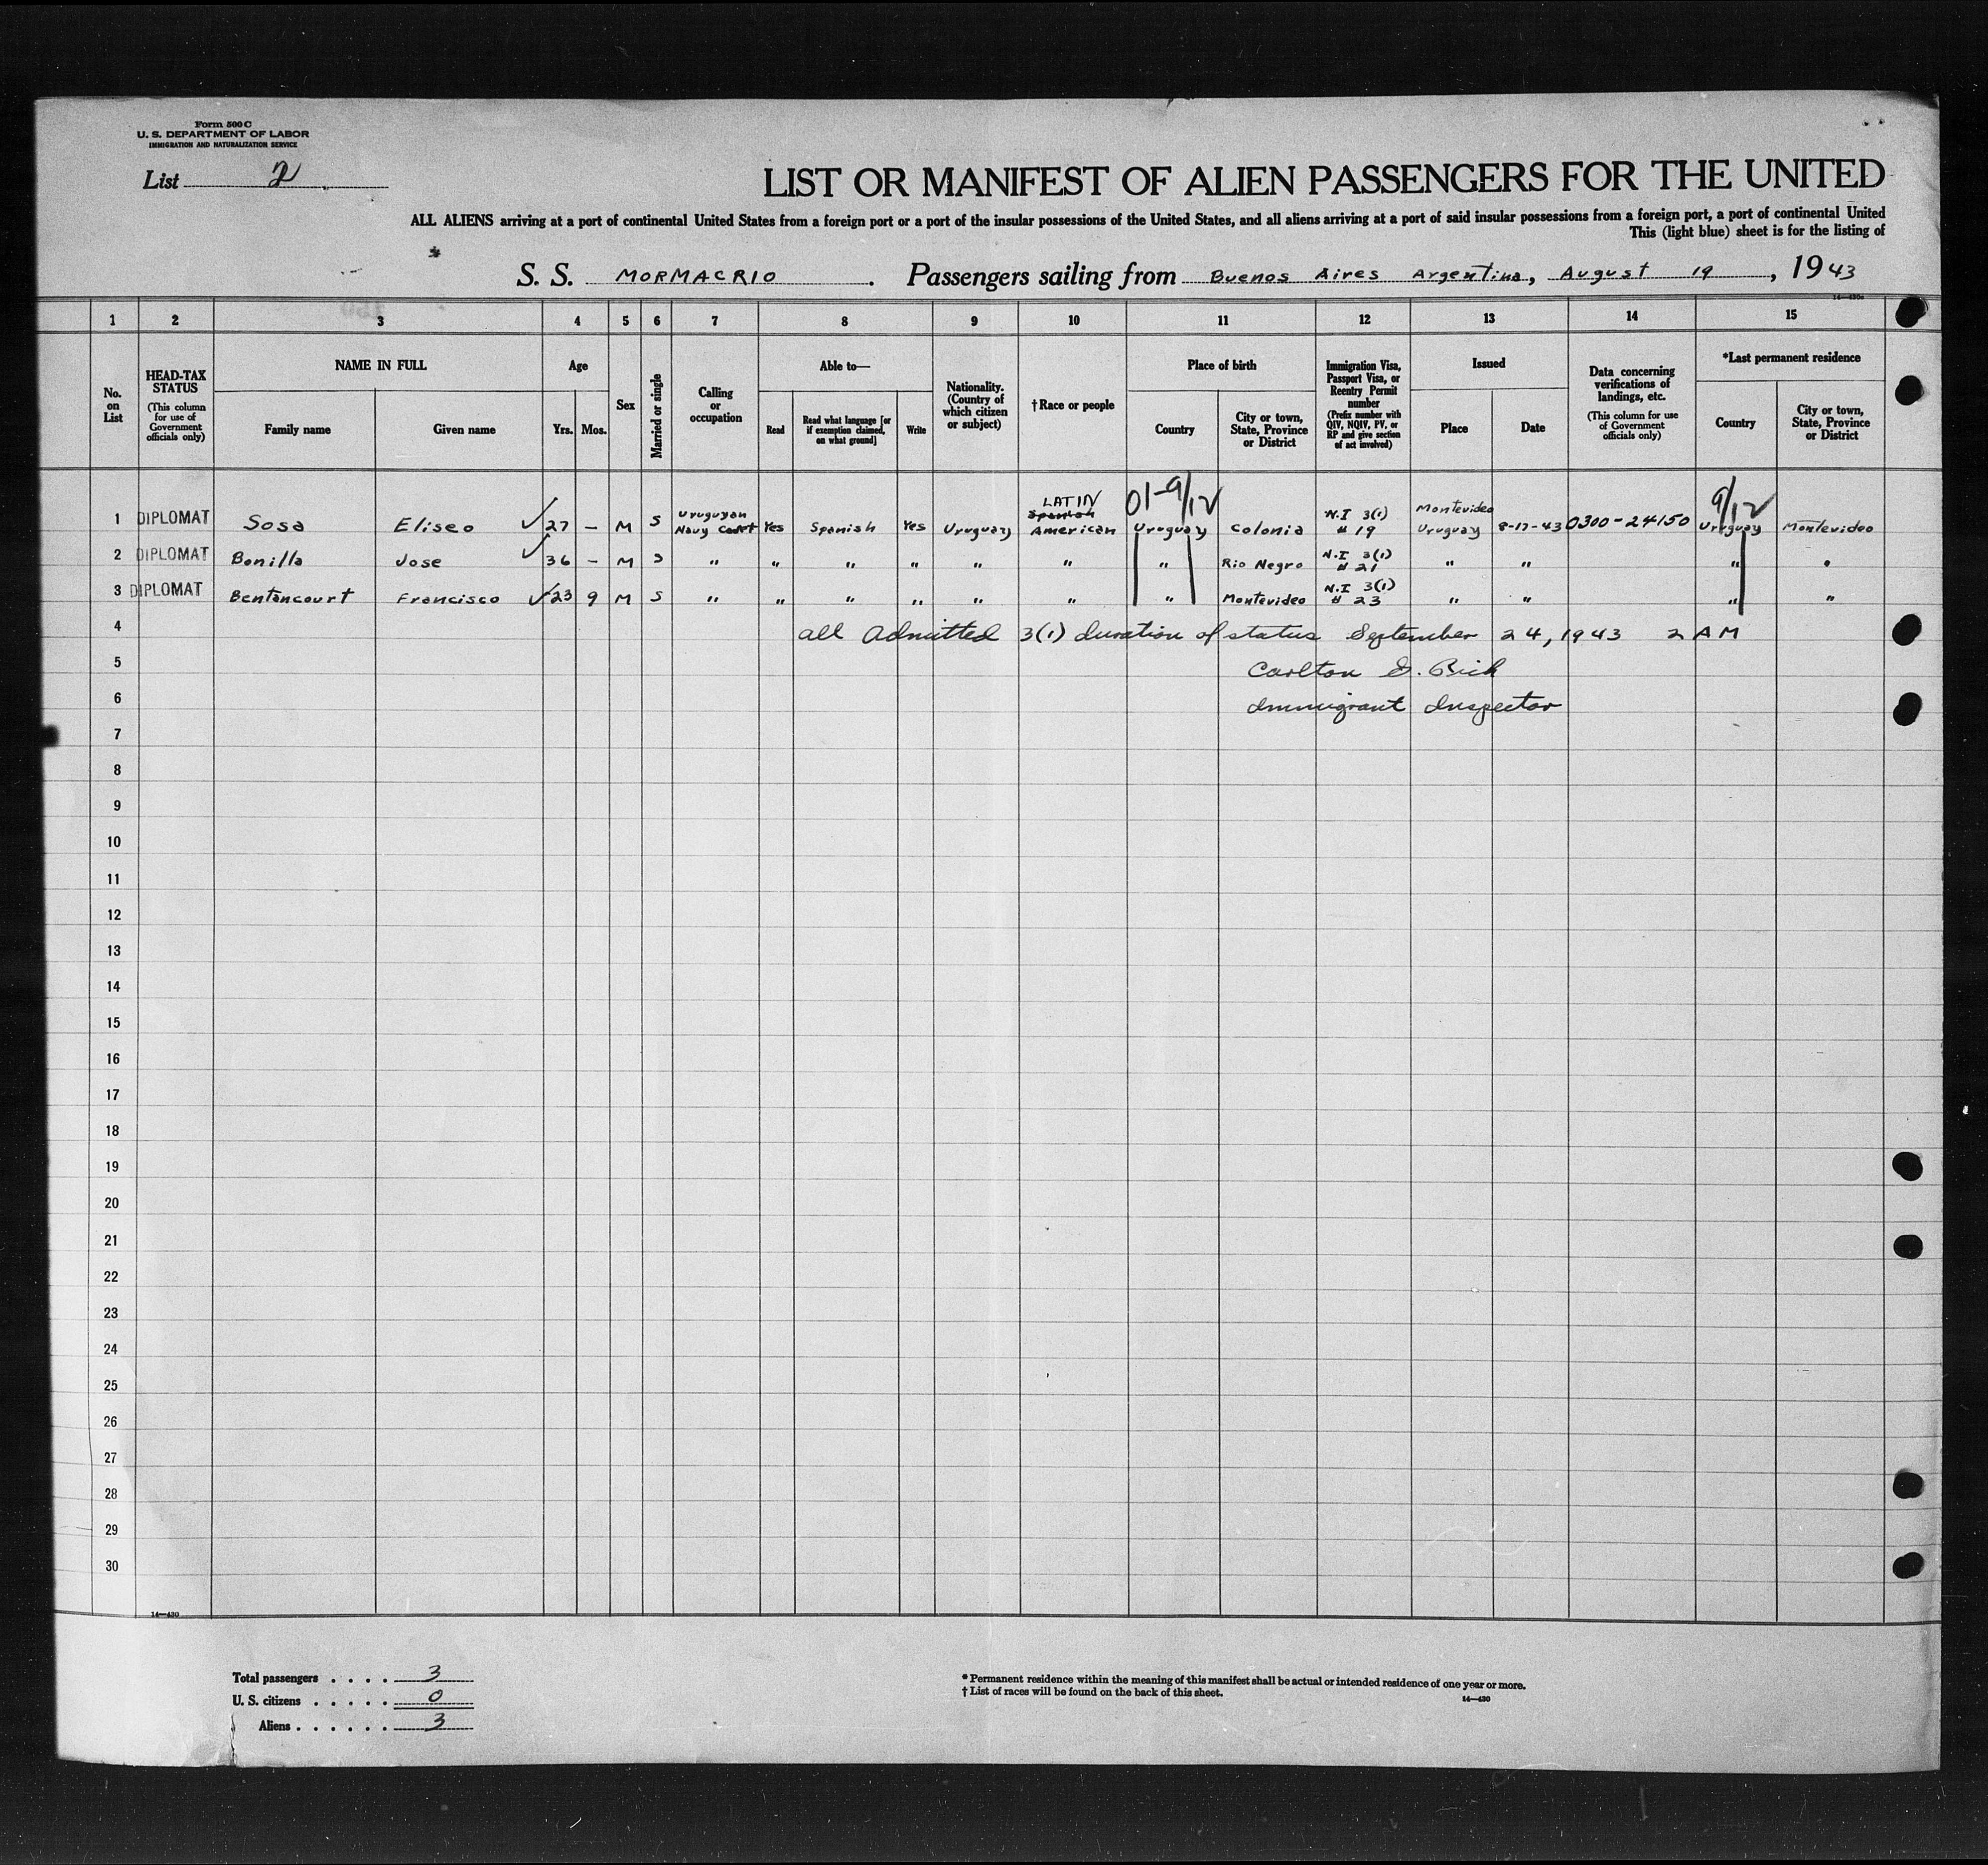 Form 500 C
U. S. DEPARTMENT OF LABOR
IMMIGRATION AND NATURALIZATION SERVICE
List 2
LIST OR MANIFEST OF ALIEN PASSENGERS FOR THE UNITED
ALL ALIENS arriving at a port of continental United States from a foreign port or a port of the insular possessions of the United States, and all aliens arriving at a port of said insular possessions from a foreign port, a port of continental United
This (light blue) sheet is for the listing of
S. S. MORMACRIO. Passengers sailing from Buenos Aires Argentina, August 19, 1943
14—430a
1 2 3 4 5 6 7 8 9 10 11 12 13 14 15
No. on List
HEAD-TAX STATUS (This column for use of Government officials only)
NAME IN FULL
Family name Given name
Age
Yrs. Mos.
Sex
Married or single
Calling or occupation
Able to—
Read Read what language [or if exemption claimed, on what ground] Write
Nationality. (Country of which citizen or subject)
†Race or people
Place of birth
Country City or town, State, Province or District
Immigration Visa, Passport Visa, or Reentry Permit number (Prefix number with QIV, NQIV, PV, or RP and give section of act involved)
Issued
Place Date
Data concerning verifications of landings, etc. (This column for use of Government officials only)
*Last permanent residence
Country City or town, State, Province or District
LATIN 01-9/12 9/12
1 DIPLOMAT Sosa Eliseo ✓ 27 – M S Uruguyan Navy Cadet Yes Spanish Yes Uruguay Spanish American Uruguay Colonia N.I 3(1) # 19 Montevideo Uruguay 8-17-43 0300-24150 Uruguay Montevideo
2 DIPLOMAT Bonilla Jose ✓ 36 – M S " " " " " " " Rio Negro N.I 3(1) # 21 " " " "
3 DIPLOMAT Bentancourt Francisco ✓ 23 9 M S " " " " " " " Montevideo N.I 3(1) # 23 " " " "
4 all Admitted 3(1) duration of status September 24, 1943 2 AM
5 Carlton Rich
6 Immigrant Inspector
7
8
9
10
11
12
13
14
15
16
17
18
19
20
21
22
23
24
25
26
27
28
29
30
14—430
Total passengers . . . . 3
U. S. citizens . . . . . 0
Aliens . . . . . . 3
* Permanent residence within the meaning of this manifest shall be actual or intended residence of one year or more.
† List of races will be found on the back of this sheet.
14—430